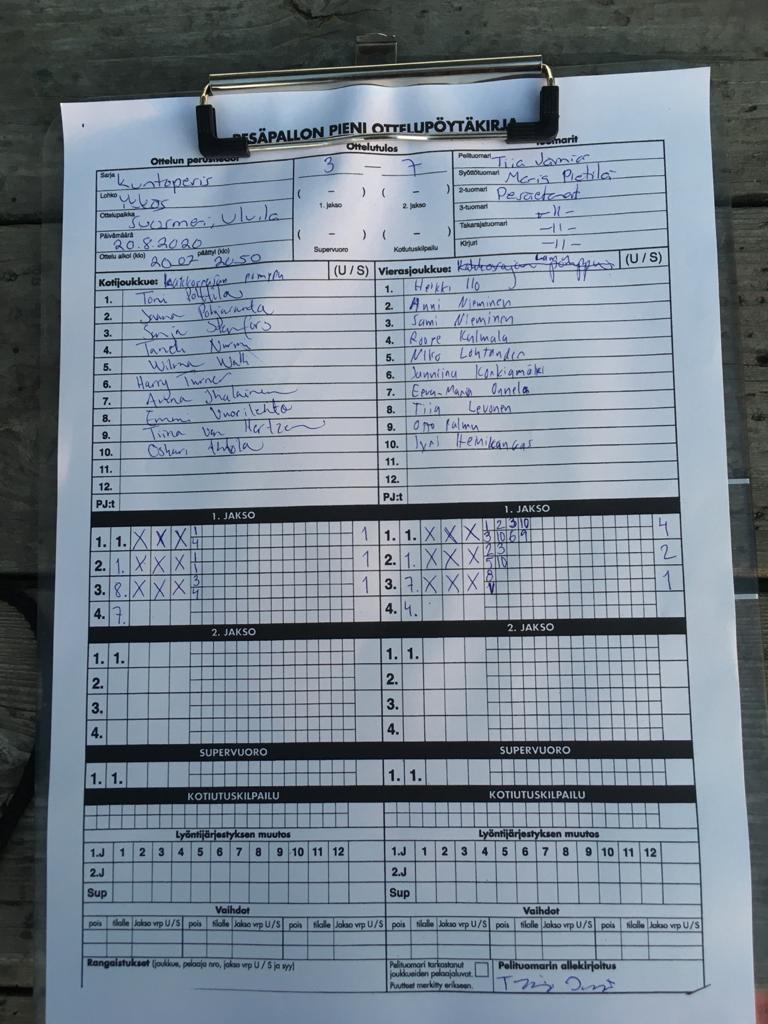 PESÄPALLON PIENI OTTELUPÖYTÄKIRJA
Ottelun perustiedot
Ottelutulos
Tuomarit
Sarja Kuntoperis
Lohko Ykkös
Ottelupaikka Suosmeri, Ulvila
Päivämäärä 20.8.2020
Ottelu alkoi (klo) 20.02 päättyi (klo) 20.50
3 — 7
( – ) ( – )
1. jakso 2. jakso
( – ) ( – )
Supervuoro Kotiutuskilpailu
Pelituomari Tiia
Syöttötuomari Maria Pietilä
2-tuomari
3-tuomari -11-
Takarajatuomari -11-
Kirjuri -11-
Kotijoukkue: (U / S)
1. Toni
2. Pohjaranta
3. Sonja
4.
5. Wilma
6. Harry Turner
7. Ihalainen
8. Emmi Vuorilehto
9. Tiina Von Hertzen
10. Oskari
11.
12.
PJ:t
Vierasjoukkue: (U / S)
1. Heikki Ilo
2. Anni Nieminen
3. Sami Nieminen
4. Roope Kulmala
5. Niko Lohtander
6. Junniina Konkiamäki
7. Eeva-Maria Onnela
8. Tiia Levonen
9. Otto Palmu
10. Jyri Hemikangas
11.
12.
PJ:t
1. JAKSO
1. 1. X X X 1 4 1
2. 1. X X X 1 1 1
3. 8. X X X 3 4 1
4. 7.
1. JAKSO
1. 1. X X X 1 2 3 10 3 10 6 9 4
2. 1. X X X 2 3 5 10 2
3. 7. X X X 8 V 1
4. 4.
2. JAKSO
1. 1.
2.
3.
4.
2. JAKSO
1. 1.
2.
3.
4.
SUPERVUORO
1. 1.
SUPERVUORO
1. 1.
KOTIUTUSKILPAILU
KOTIUTUSKILPAILU
Lyöntijärjestyksen muutos
1.J 1 2 3 4 5 6 7 8 9 10 11 12
2.J
Sup
Lyöntijärjestyksen muutos
1.J 1 2 3 4 5 6 7 8 9 10 11 12
2.J
Sup
Vaihdot
pois tilalle Jakso vrp U / S pois tilalle Jakso vrp U / S pois tilalle Jakso vrp U / S
Vaihdot
pois tilalle Jakso vrp U / S pois tilalle Jakso vrp U / S pois tilalle Jakso vrp U / S
Rangaistukset (joukkue, pelaaja nro, jakso vrp U / S ja syy)
Pelituomari tarkastanut
joukkueiden pelaajaluvat.
Puutteet merkitty erikseen.
Pelituomarin allekirjoitus